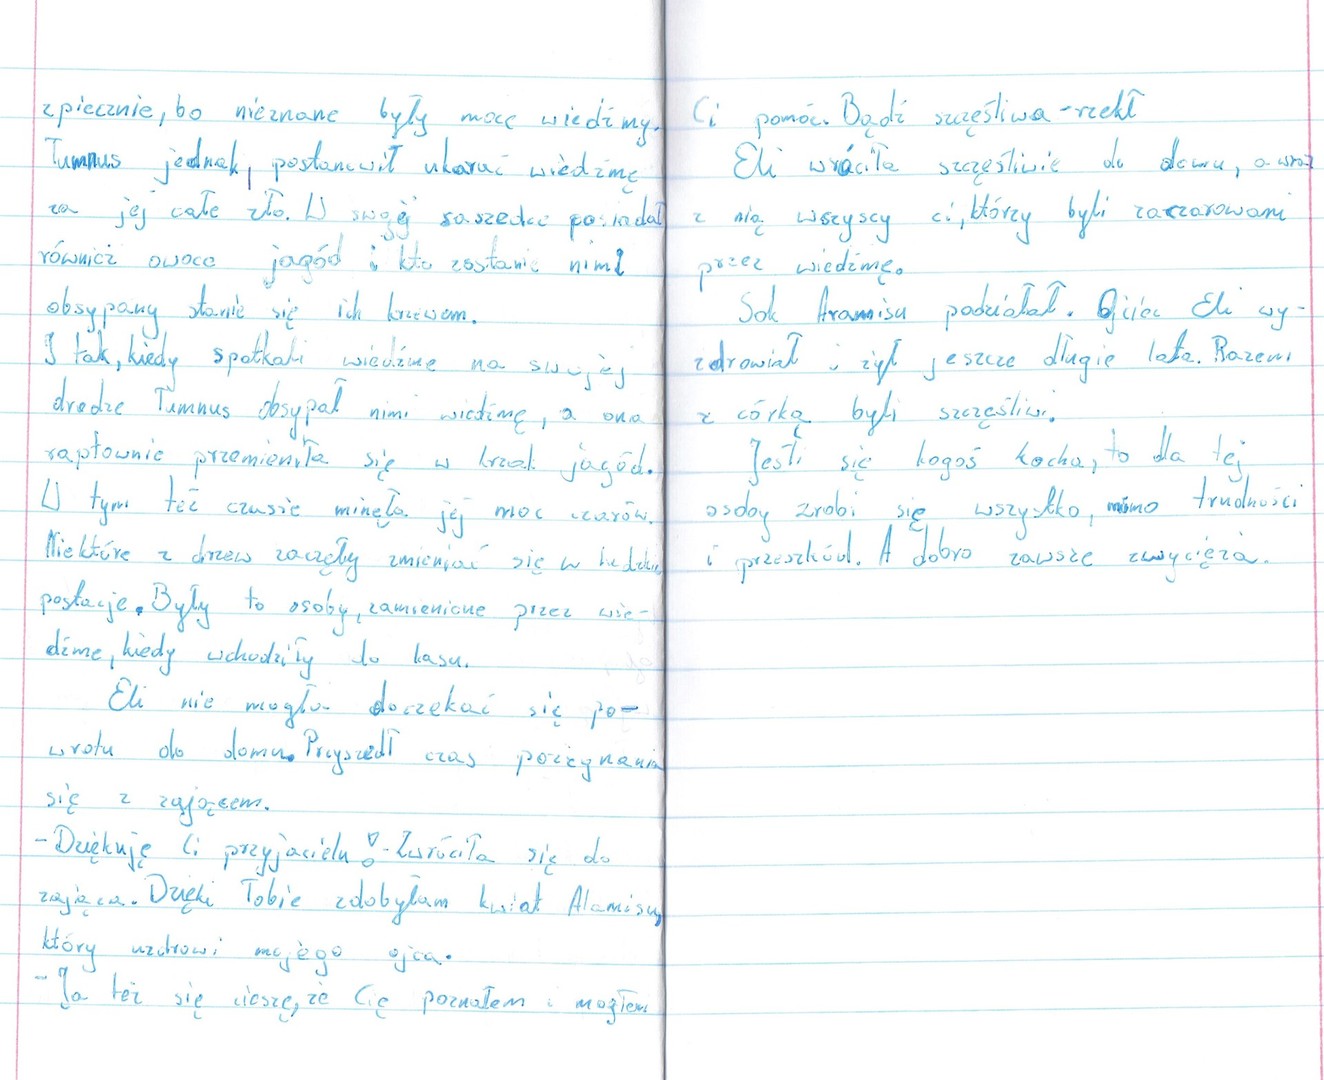 zpiecznie, bo nieznane były moce wiedźmy.
Tumnus jednak, postanowił ukarać wiedźmę
za jej całe zło. W swojej saszedce posiadał
również owoce jagód i kto zostanie nimi
obsypany stanie się ich krzewem.
I tak, kiedy spotkali wiedźmę na swojej
drodze Tumnus obsypał nimi wiedźmę, a ona
raptownie przemieniła się w krzak jagód.
W tym też czasie minęła jej moc czarów.
Niektóre z drzew zaczęły zmieniać się w ludzkie
postacje. Były to osoby, zamienione przez wie-
dźmę, kiedy wchodziły do lasu.
Eli nie mogła doczekać się po-
wrotu do domu. Przyszedł czas pożegnania
się z zającem.
- Dziękuję Ci przyjacielu! - Zwróciła się do
zająca. Dzięki Tobie zdobyłam kwiat Alamisu,
który uzdrowi mojego ojca.
- Ja też się cieszę, że Cię poznałem i mogłem
Ci pomóc. Bądź szczęśliwa - rzekł
Eli wróciła szczęśliwie do domu, a wraz
z nią wszyscy ci, którzy byli zaczarowani
przez wiedźmę.
Sok Aramisu podziałał. Ojciec Eli wy-
zdrowiał i żył jeszcze długie lata. Razem
z córką byli szczęśliwi.
Jeśli się kogoś kocha, to dla tej
osoby zrobi się wszystko, mimo trudności
i przeszkód. A dobro zawsze zwycięża.